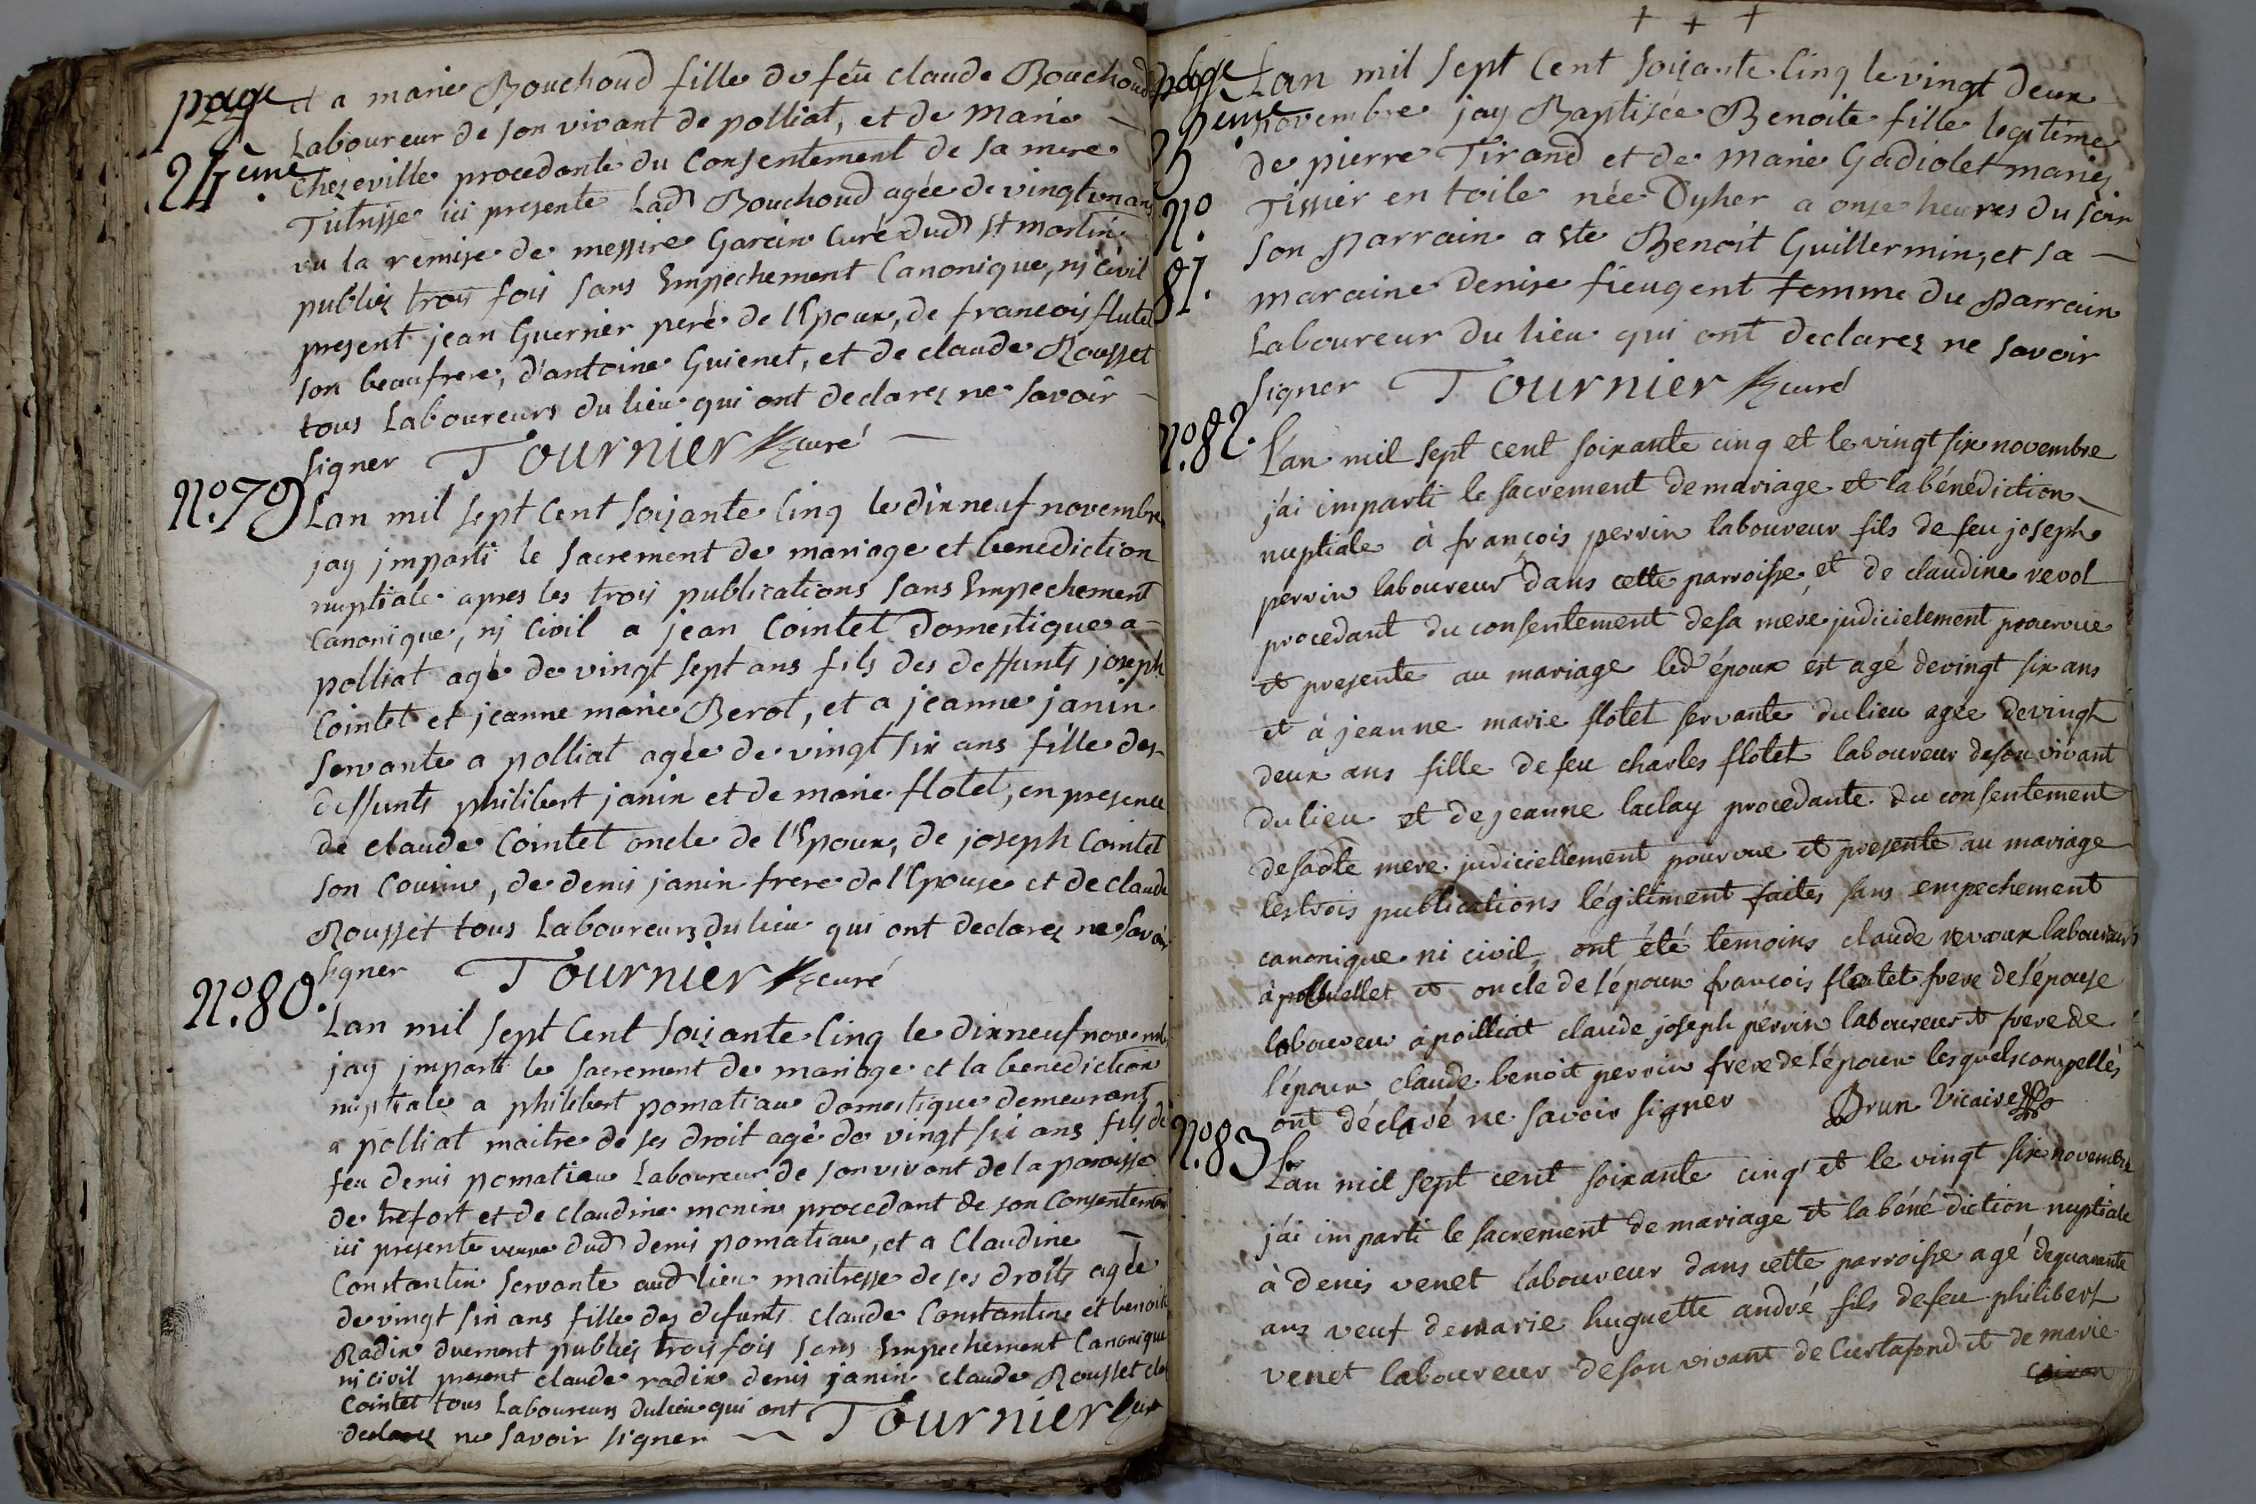 page
24eme.
et a marie Bouchoud fille de feu claude Bouchoud
Laboureur de son vivant de polliat, et de Marie
Chezeville procedante du Consentement de sa mere
Tutrisse ici presente Lad Bouchoud agée de vingt un ans
vu la remise de messire Garcin Curé dud st martin
publiez trois fois sans Empechement Canonique, nj Civil
present jean Guernier peré de l'Epoux, de francois flutet
son beaufrere, d'antoine Guienet, et de claude Rousset
tous Laboureurs du lieu qui ont declarez ne savoir
signer Tournier curé
No. 79
Lan mil sept Cent soizante Cinq le dix neuf novembre
jay jmparti le sacrement de mariage et benediction
nuptiale apres les trois publications sans Empechement
Canonique, nj Civil a jean Cointet Domestique a
polliat agé de vingt sept ans fils des deffunts joseph
Cointet et jeanne marie Berot, et a jeanne janin
servante a polliat agée de vingt six ans fille des
deffunts philibert janin et de marie flotet, en presence
de claude Cointet oncle de l'Epoux, de joseph Cointet
son Cousin, de denis janin frere de l'Epouse et de claude
Rousset tous Laboureurs du lieu qui ont declarez ne savoir
signer Tournier curé
No. 80.
Lan mil sept Cent soizante Cinq le dixneuf novemb
jay jmparti le sacrement de mariage et la benediction
nuptiale a philibert pomatiau domestique demeurant
a polliat maitre de ses droit agé de vingt six ans fils de
feu denis pomatiau Laboureur de son vivant de la paroisse
de trefort et de claudine monin procedant de son Consentement
ici presente veuve dud denis pomatiau, et a Claudine
Constantin servante aud lieu maitresse de ses droits agée
de vingt six ans fille des defunts claude Constantin et benoite
Radin duement publiez trois fois sans Empechement Canonique
nj civil present claude radin denis janin claude Rousset cle
Cointet tous Laboureurs du lieu qui ont Tournier cur
declarez ne savoir signer
page
25eme.
+ + +
No.
81.
Lan mil sept Cent soizante Cinq le vingt deux
novembre jay Baptisée Benoite fille legitime
de pierre Tirand et de marie Gadiolet mariez
Tissier en toile née Dyher a onze heures du soir
son parrain a ete Benoit Guillermin, et sa
maraine denise fieugent femme du parrain
Laboureur du lieu qui ont declarez ne savoir
signer Tournier curé
No. 82.
L'an mil sept cent soixante cinq et le vingt six novembre
j'ai imparti le sacrement de mariage et la bénédiction
nuptiale à françois perrin laboureur fils de feu joseph
perrin laboureur dans cette parroisse, et de claudine revol
procedant du consentement de sa mere judicielement pourvue
et presente au mariage led époux est agé de vingt six ans
et à jeanne marie flotet servante du lieu agée de vingt
deux ans fille de feu charles flotet laboureur de son vivant
du lieu et de jeanne laclay procedante du consentement
de sadte mere judiciellement pourvue et presente au mariage
les trois publications légitiment faites sans empechement
canonique ni civil, ont été temoins claude revoux laboureur
à polluellet et oncle de l'époux françois fleutet frere de l'épouse
laboureu à poilliat claude joseph perrin laboureur et frere de
l'époux claude benoit perrin frere de l'époux lesquels compellés
ont déclaré ne savoir signer Brun Vicaire
No. 83
L'an mil sept cent soixante cinq et le vingt six novembre
j'ai imparti le sacrement de mariage et la bénédiction nuptiale
à denis venet laboureur dans cette parroisse agé de quarante
ans veuf de marie huguette andré fils de feu philibert
venet laboureur de son vivant de Curtafond et de marie